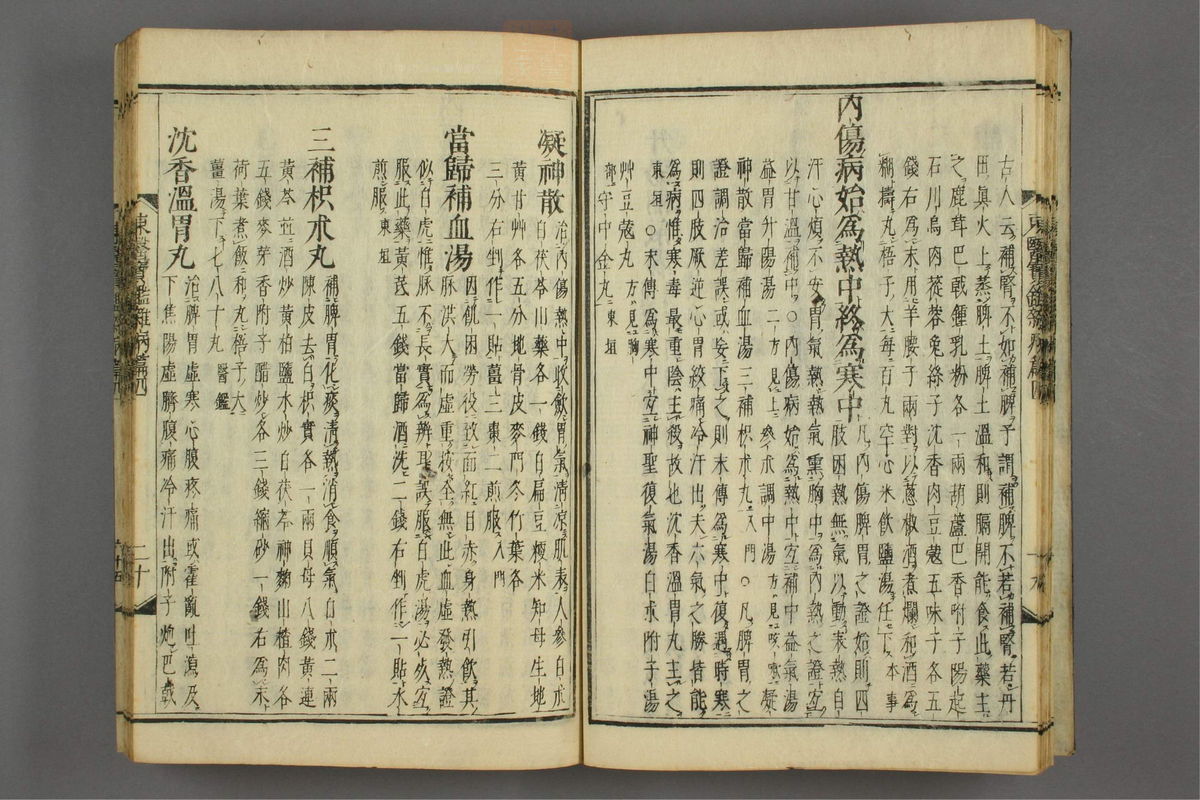 古人云補腎不如補脾予謂補脾不若補腎若丹
田眞火上蒸脾土脾土溫和則膈開能食此藥主
之鹿茸巴戟鍾乳粉各一兩葫蘆巴香附子陽起
石川烏肉蓯蓉兎絲子沈香肉豆蔲五味子各五
錢右爲末用羊腰子兩對以葱椒酒煮爛和酒爲
糊擣丸梧子大每百丸空心米飮鹽湯任下本事
內傷病始爲熱中終爲寒中凡內傷脾胃之證始則四
肢困熱無氣以動表熱自
汗心煩不安胃氣熱熱氣熏胸中爲內熱之證宜
以甘溫補中○內傷病始爲熱中宜補中益氣湯
益胃升陽湯二方見上參朮調中湯方見咳嗽凝
神散當歸補血湯三補枳朮丸入門○凡脾胃之
證調治差誤或妄下之則末傳爲寒中復遇時寒
則四肢厥逆心胃絞痛冷汗出夫六氣之勝皆能
爲病惟寒毒最重陰主殺故也沈香溫胃丸主之
東垣○末傳爲寒中宜神聖復氣湯白朮附子湯
艸豆蔲丸方見胸部守中金丸東垣
凝神散治內傷熱中收飮胃氣淸凉肌表人參白朮
白茯苓山藥各一錢白扁豆粳米知母生地
黃甘艸各五分地骨皮麥門冬竹葉各
三分右剉作一貼薑三棗二煎服入門
當歸補血湯因飢困勞役致面紅目赤身熱引飮其
脈洪大而虛重按全無此血虛發熱證
似白虎惟脈不長實爲辨耳誤服白虎湯必死宜
服此藥黃芪五錢當歸酒洗二錢右剉作一貼水
煎服東垣
三補枳朮丸補脾胃化痰淸熱消食順氣白朮二兩
陳皮去白枳實各一兩貝母八錢黃連
黃芩並酒炒黃柏鹽水炒白茯苓神麴山楂肉各
五錢麥芽香附子醋炒各三錢縮砂一錢右爲末
荷葉煮飯和丸梧子大
薑湯下七八十丸醫鑑
沈香溫胃丸治脾胃虛寒心腹疼痛或霍亂吐瀉及
下焦陽虛臍腹痛冷汗出附子炮巴戟